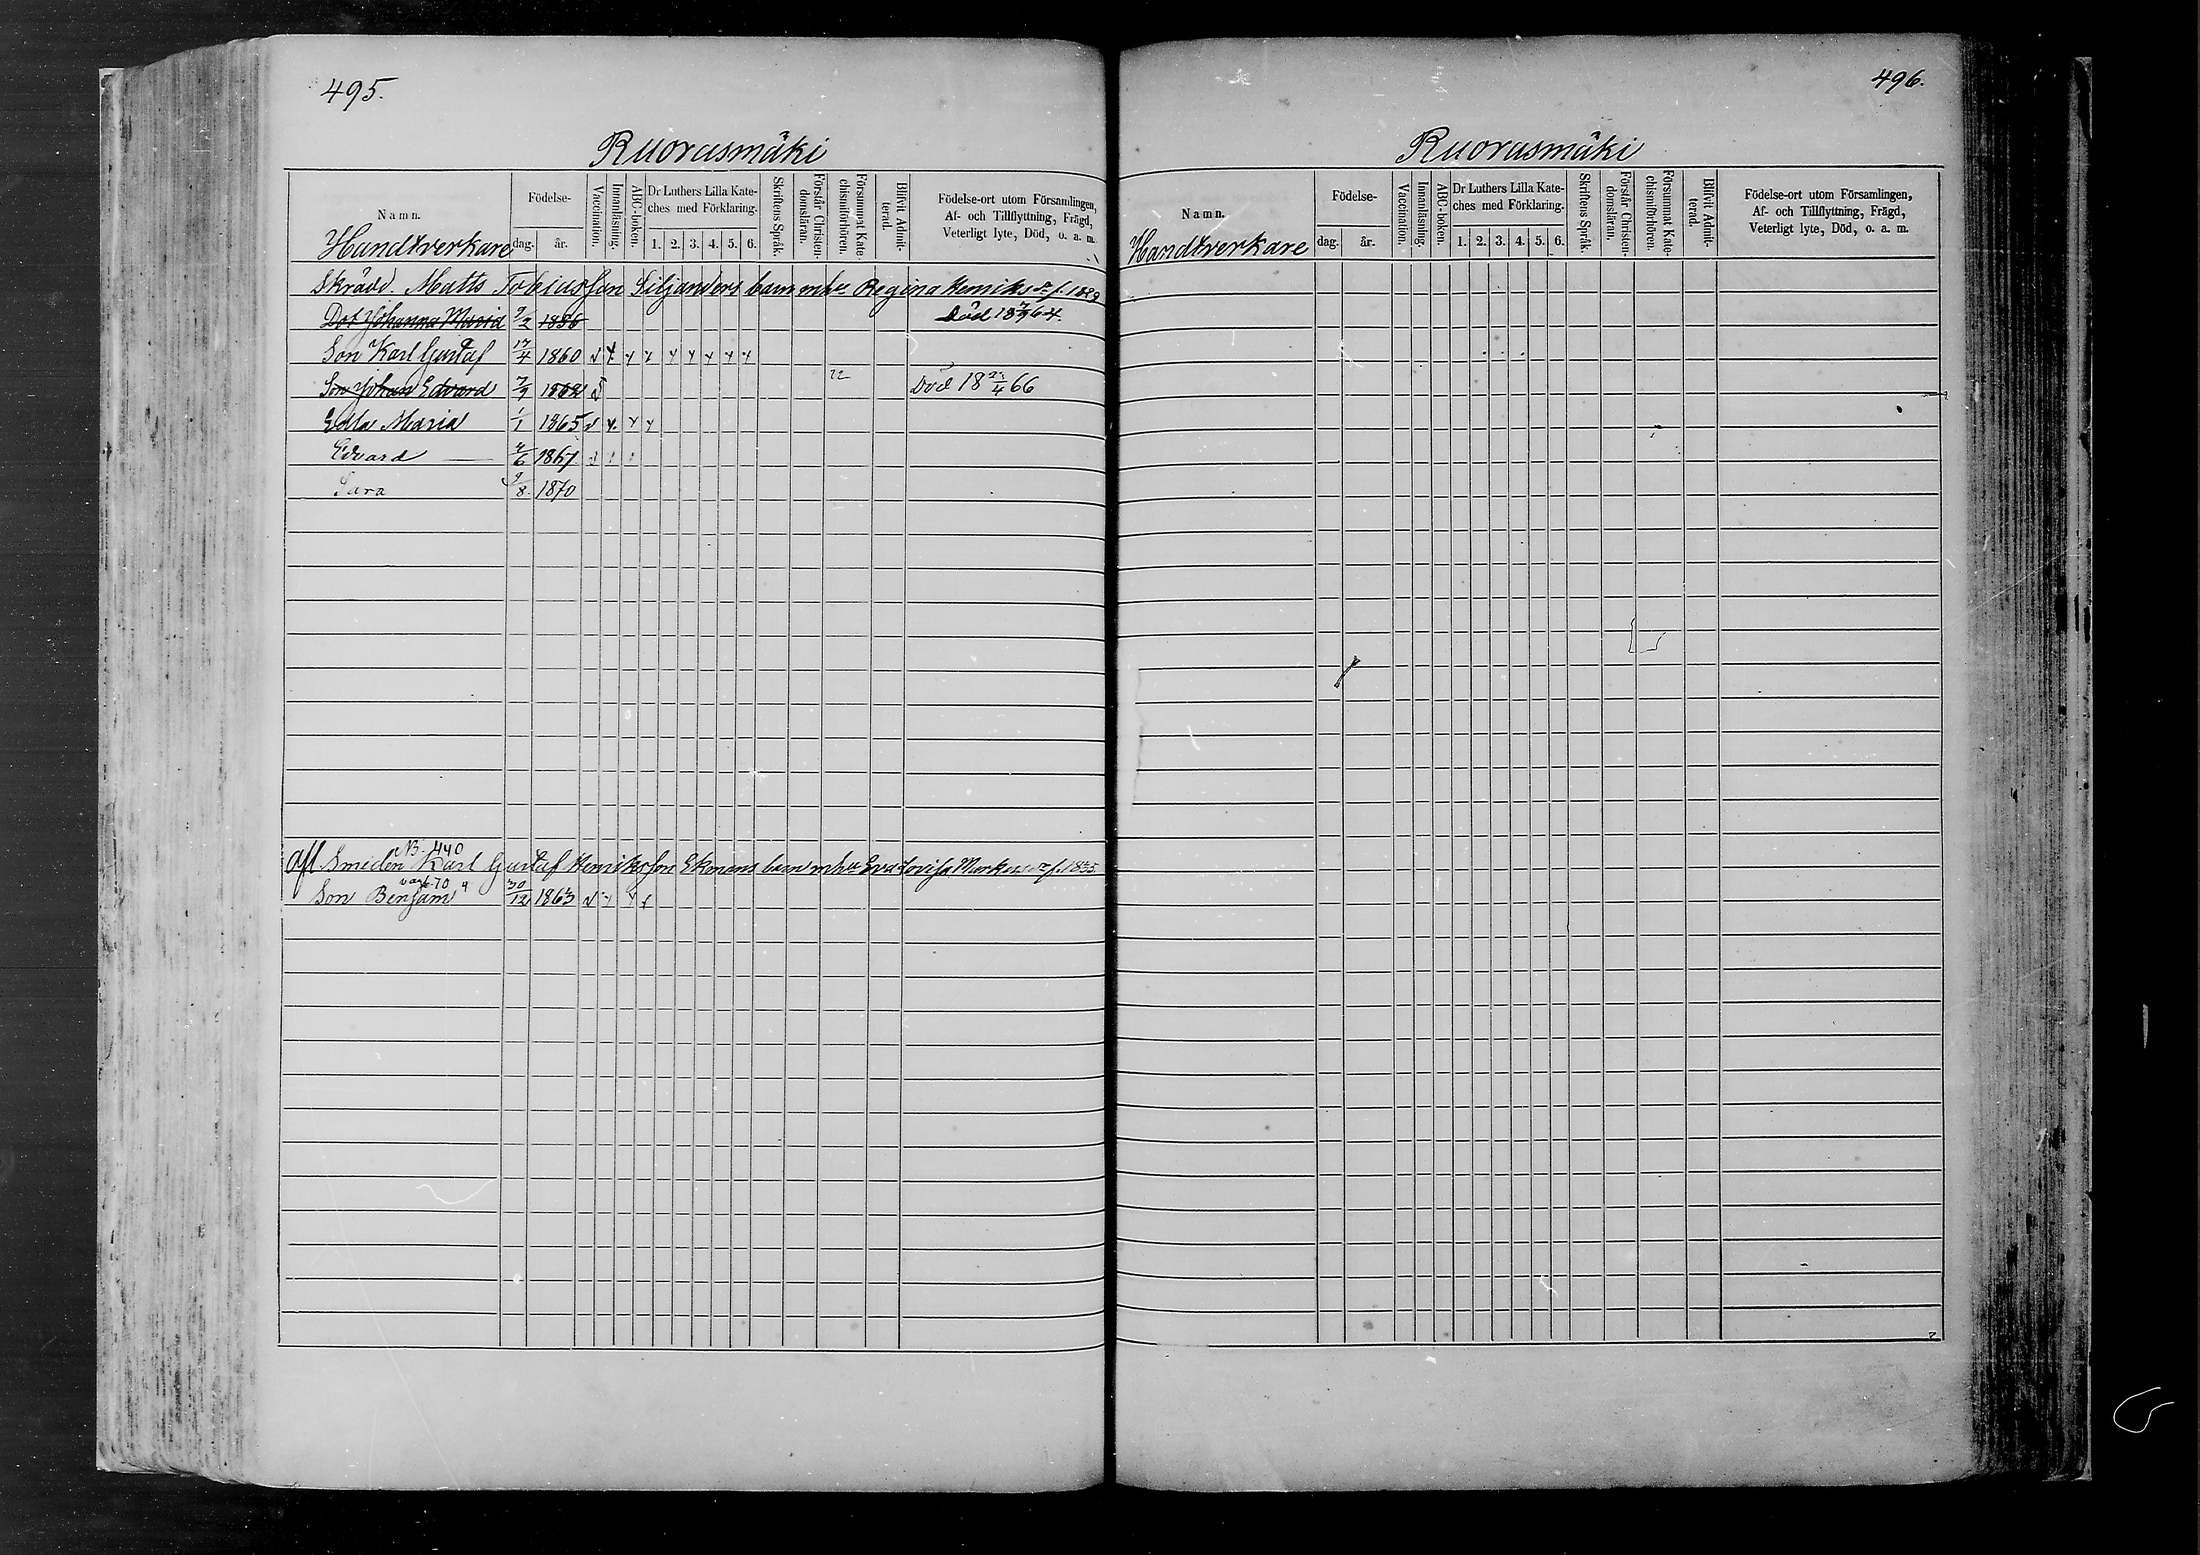 495.
Ruorasmäki
Namn.
Födelse-
dag. år.
Vaccination.
Innanläsning.
ABC-boken.
Dr Luthers Lilla Kate-
ches med Förklaring.
1. 2. 3. 4. 5. 6.
Skriftens Språk.
Förstår Christen-
domsläran.
Försummat Kate-
chismiförhören.
Blifvit Admit-
terad.
Födelse-ort utom Församlingen,
Af- och Tillflyttning, Frägd,
Veterligt lyte, Död, o. a. m.
Handtverkare
Skrädd. Matts Tobiasson Siljanders barn m h Regina Henriks f. 1829
Dot Johanna Maria 9/2 1856 Död 64
Son Karl Gustaf 17/4 1860
Son Johan Edvard 7/9 1862 Död 18 /4 66
Edla Maria 1/1 1865
Edvard 1867
Sara 9/8 1870
N. 440
afl Smeden Karl Gustaf Henriksson Ekonens barn m h Eva Lovisa Markus f. 1835
70
Son Benjam 30/12 1863
496.
Ruorasmäki
Namn.
Födelse-
dag. år.
Vaccination.
Innanläsning.
ABC-boken.
Dr Luthers Lilla Kate-
ches med Förklaring.
1. 2. 3. 4. 5. 6.
Skriftens Språk.
Förstår Christen-
domsläran.
Försummat Kate-
chismiförhören.
Blifvit Admit-
terad.
Födelse-ort utom Församlingen,
Af- och Tillflyttning, Frägd,
Veterligt lyte, Död, o. a. m.
Handtverkare